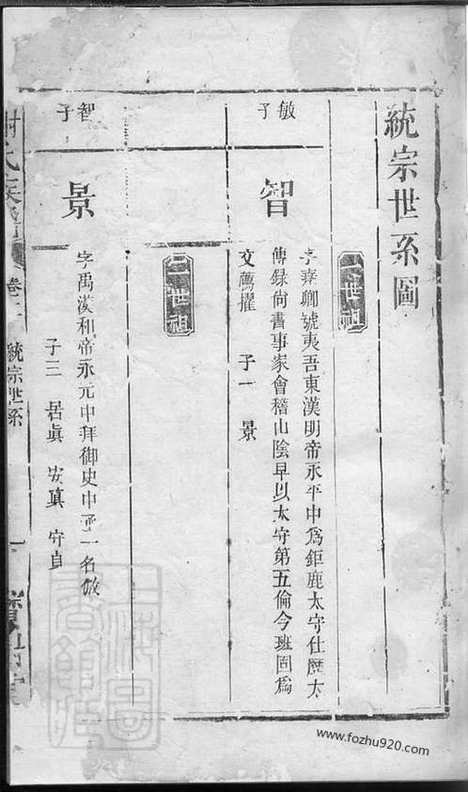 統宗世系圖
一世祖
敏子
智
字堯卿號夷吾東漢明帝永平中爲鉅鹿太守仕歷太
傅録尙書事家會稽山陰早以太守第五倫令班固爲
文薦擢　子一　景
二世祖
智子
景
字禹漢和帝永元中拜御史中丞一名敏
子三　居眞　安眞　守貞
謝氏族譜　卷之　統宗世系　一　寶樹堂
www.fozhu920.com